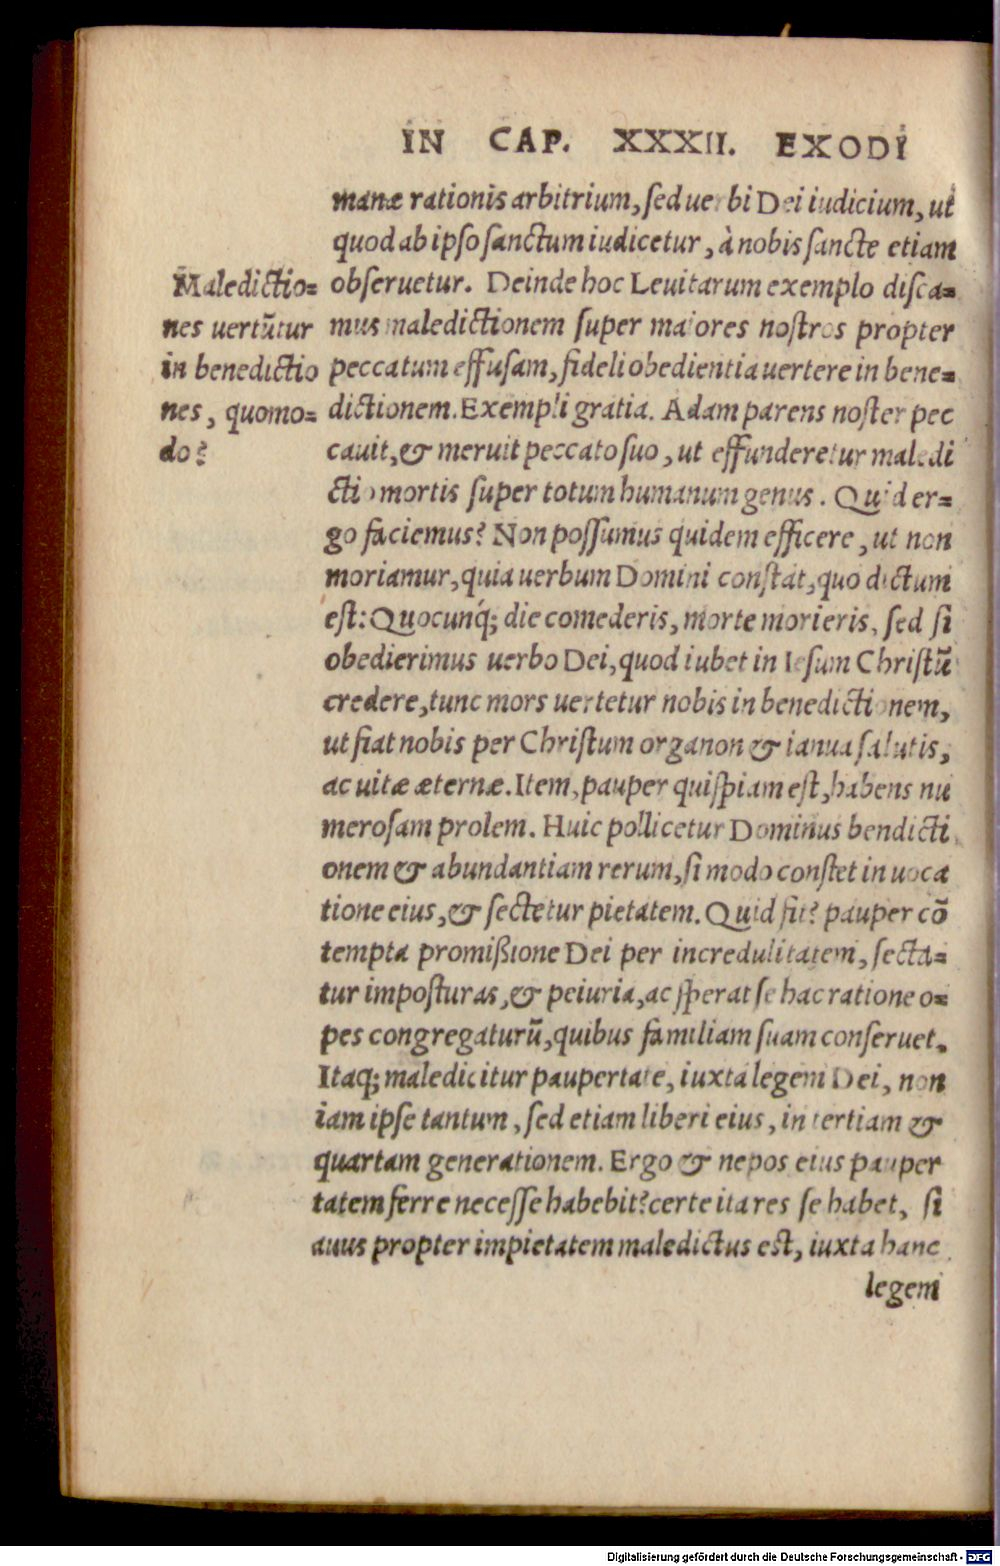 IN CAP. XXXII. EXODI
manæ rationis arbitrium, sed uerbi Dei iudicium, ut
quod ab ipso sanctum iudicetur, à nobis sancte etiam
obseruetur. Deinde hoc Leuitarum exemplo disca=
mus maledictionem super maiores nostros propter
peccatum effusam, fideli obedientia uertere in bene=
dictionem. Exempli gratia. Adam parens noster pec
cauit, & meruit peccato suo, ut effunderetur maledi
ctio mortis super totum humanum genus. Quid er=
go faciemus? Non possumus quidem efficere, ut non
moriamur, quia uerbum Domini constat, quo dictum
est: Quocunq́; die comederis, morte morieris, sed si
obedierimus uerbo Dei, quod iubet in Iesum Christũ
credere, tunc mors uertetur nobis in benedictionem,
ut fiat nobis per Christum organon & ianua salutis,
ac uitæ æternæ. Item, pauper quispiam est, habens nu
merosam prolem. Huic pollicetur Dominus bendicti
onem & abundantiam rerum, si modo constet in uoca
tione eius, & sectetur pietatem. Quid fit? pauper cõ
tempta promißione Dei per incredulitatem, secta=
tur imposturas, & peiuria, ac sperat se hac ratione o=
pes congregaturũ, quibus familiam suam conseruet.
Itaq; maledicitur paupertate, iuxta legem Dei, non
iam ipse tantum, sed etiam liberi eius, in tertiam &
quartam generationem. Ergo & nepos eius pauper
tatem ferre necesse habebit? certe ita res se habet, si
auus propter impietatem maledictus est, iuxta hanc
legem
Maledictio=
nes uertũtur
in benedictio
nes, quomo=
do?
Digitalisierung gefördert durch die Deutsche Forschungsgemeinschaft - DFG